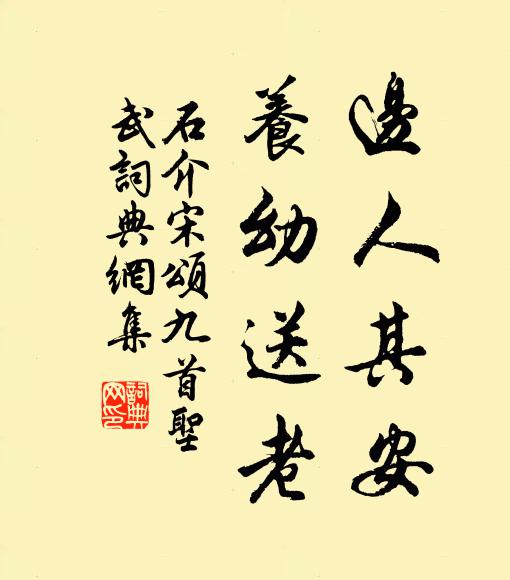 邊人其安
養幼送老
石介宋頌九首聖
武詞典網集
詞典網印